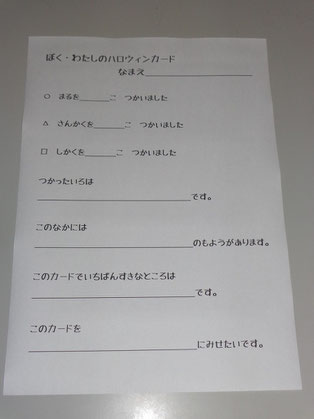 ぼく・わたしのハロウィンカード
なまえ____________________
○ まるを______こ つかいました
△ さんかくを______こ つかいました
□ しかくを______こ つかいました
つかったいろは
______________________________です。
このなかには
______________________________のもようがあります。
このカードでいちばんすきなところは
______________________________です。
このカードを
______________________________にみせたいです。